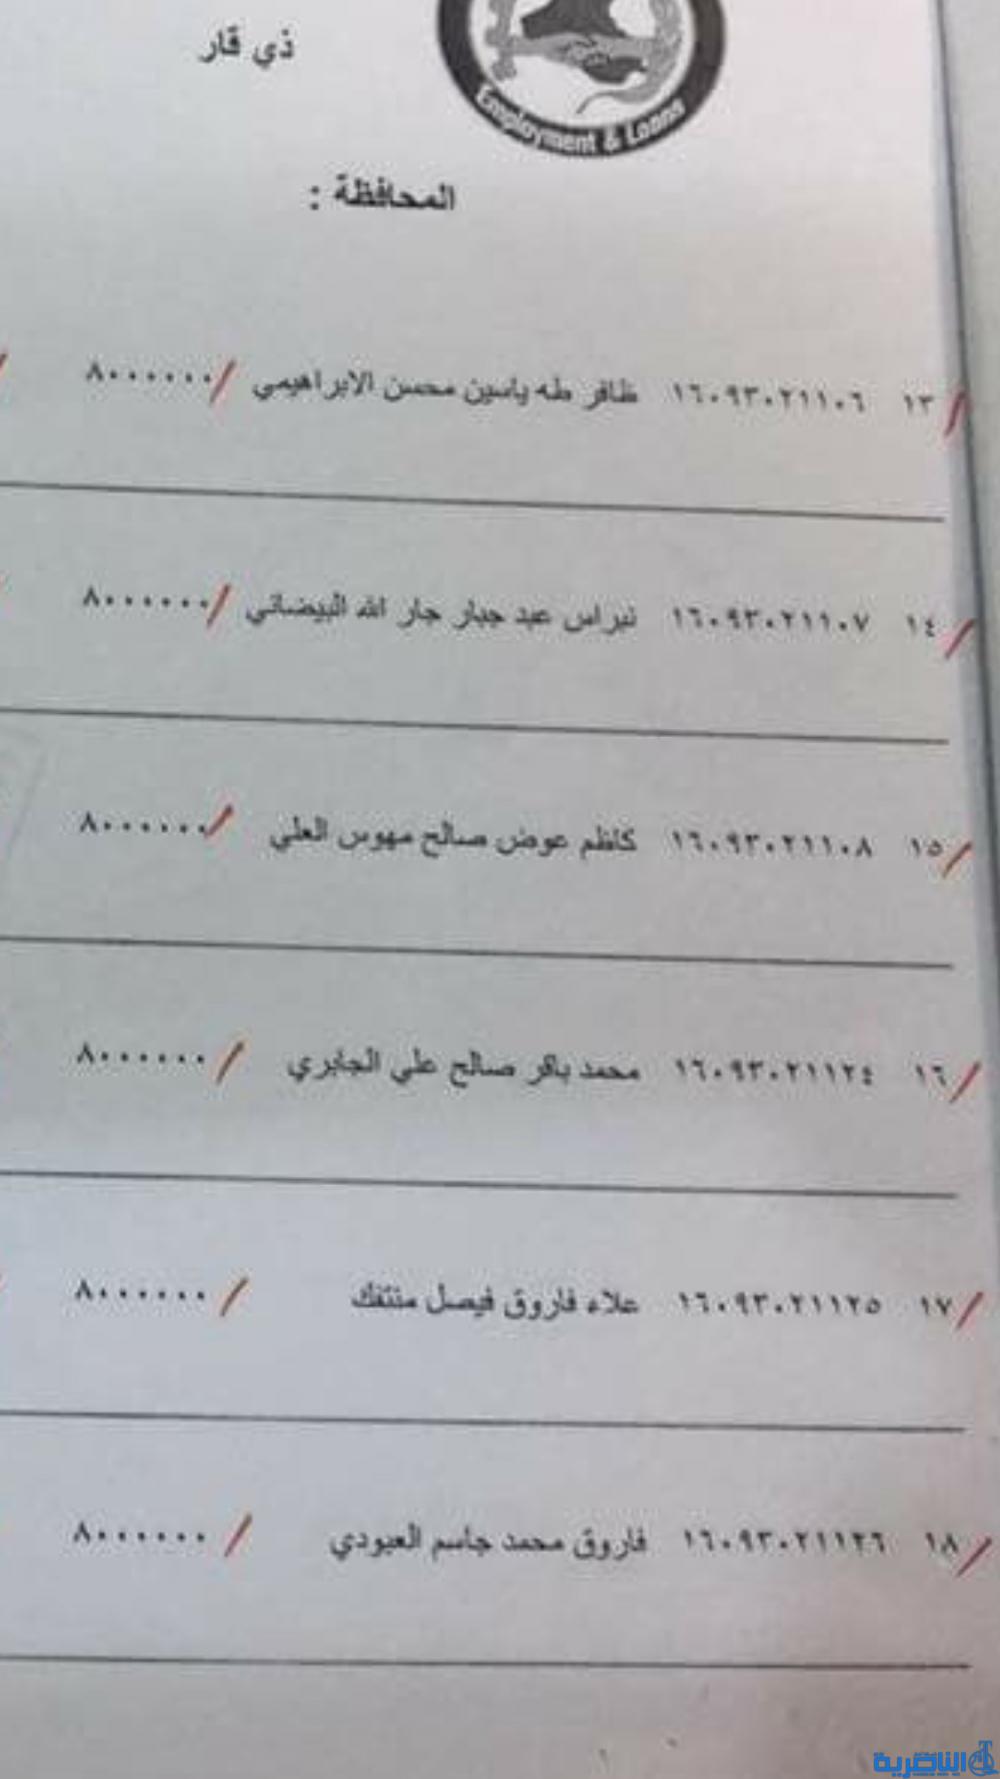 ذي قار
Employment & Loans
المحافظة :
١٣ ١٦٠٩٣٠٢١١٠٦ ظافر طه ياسين محسن الابراهيمي ٨٠٠٠٠٠٠
١٤ ١٦٠٩٣٠٢١١٠٧ نبراس عبد جبار جار الله البيضاني ٨٠٠٠٠٠٠
١٥ ١٦٠٩٣٠٢١١٠٨ كاظم عوض صالح مهوس العلي ٨٠٠٠٠٠٠
١٦ ١٦٠٩٣٠٢١١٢٤ محمد باقر صالح علي الجابري ٨٠٠٠٠٠٠
١٧ ١٦٠٩٣٠٢١١٢٥ علاء فاروق فيصل منتفك ٨٠٠٠٠٠٠
١٨ ١٦٠٩٣٠٢١١٢٦ فاروق محمد جاسم العبودي ٨٠٠٠٠٠٠
الناصرية